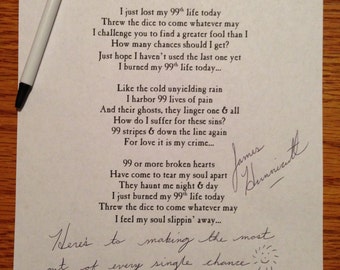 I just lost my 99th life today
Threw the dice to come whatever may
I challenge you to find a greater fool than I
How many chances should I get?
Just hope I haven't used the last one yet
I burned my 99th life today...
Like the cold unyielding rain
I harbor 99 lives of pain
And their ghosts, they linger one & all
How do I suffer for these sins?
99 stripes & down the line again
For love it is my crime...
99 or more broken hearts
Have come to tear my soul apart
They haunt me night & day
I just burned my 99th life today
Threw the dice to come whatever may
I feel my soul slippin' away...
James
Hunnicutt
Here's to making the most
out of every single chance